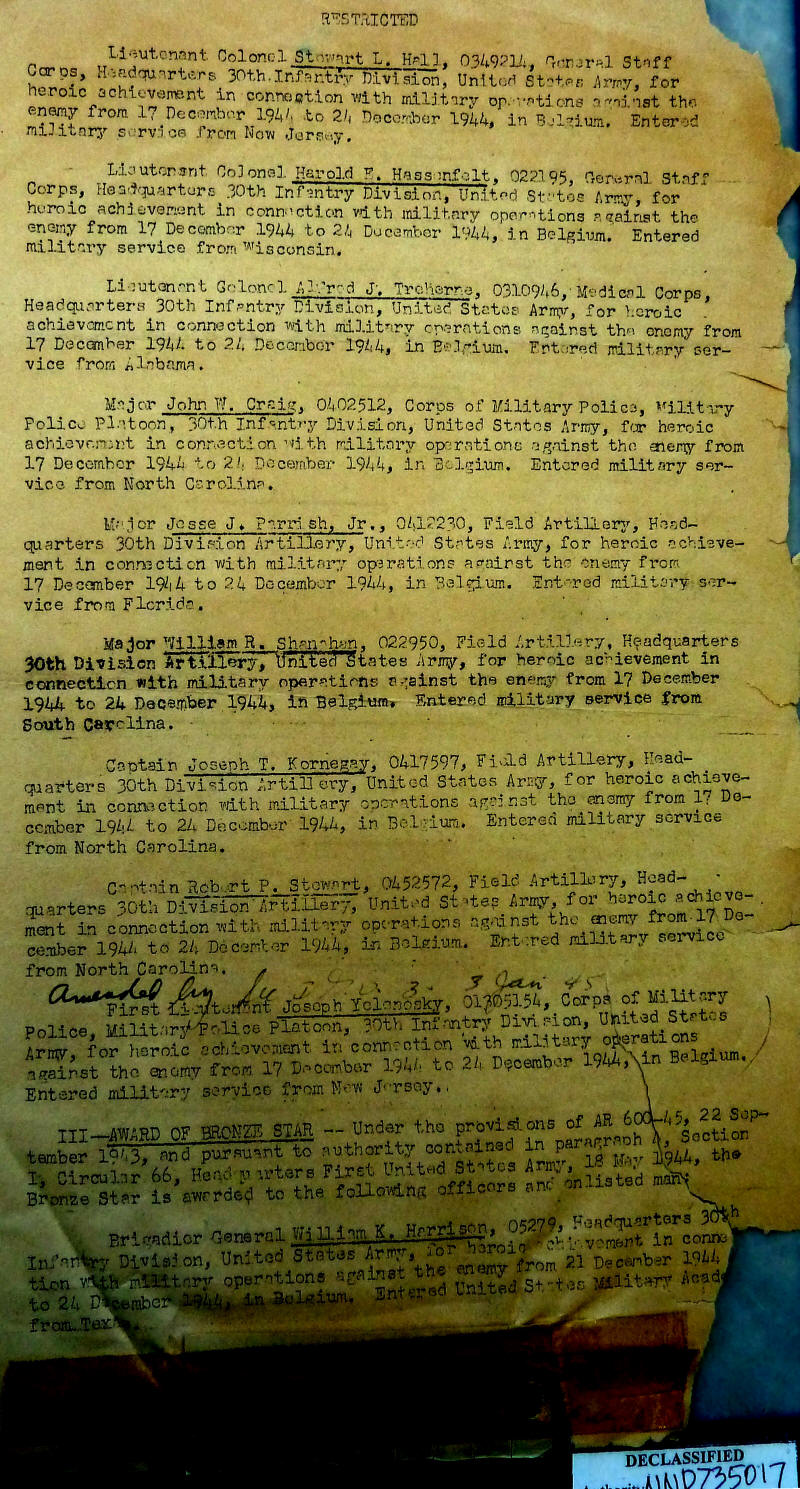 RESTRICTED
Lieutenant Colonel Stewart L. Hall, O349214, General Staff
Corps, Headquarters 30th Infantry Division, United States Army, for
heroic achievement in connection with military operations against the
enemy from 17 December 1944 to 24 December 1944, in Belgium. Entered
military service from New Jersey.
Lieutenant Colonel Harold E. Hassenfelt, O22195, General Staff
Corps, Headquarters 30th Infantry Division, United States Army, for
heroic achievement in connection with military operations against the
enemy from 17 December 1944 to 24 December 1944, in Belgium. Entered
military service from Wisconsin.
Lieutenant Colonel Alfred J. Treherne, O310946, Medical Corps,
Headquarters 30th Infantry Division, United States Army, for heroic
achievement in connection with military operations against the enemy from
17 December 1944 to 24 December 1944, in Belgium. Entered military ser-
vice from Alabama.
Major John W. Craig, O402512, Corps of Military Police, Military
Police Platoon, 30th Infantry Division, United States Army, for heroic
achievement in connection with military operations against the enemy from
17 December 1944 to 24 December 1944, in Belgium. Entered military ser-
vice from North Carolina.
Major Jesse J. Parrish, Jr., O412230, Field Artillery, Head-
quarters 30th Division Artillery, United States Army, for heroic achieve-
ment in connection with military operations against the enemy from
17 December 1944 to 24 December 1944, in Belgium. Entered military ser-
vice from Florida.
Major William R. Shanahan, O22950, Field Artillery, Headquarters
30th Division Artillery, United States Army, for heroic achievement in
connection with military operations against the enemy from 17 December
1944 to 24 December 1944, in Belgium. Entered military service from
South Carolina.
Captain Joseph T. Kornegay, O417597, Field Artillery, Head-
quarters 30th Division Artillery, United States Army, for heroic achieve-
ment in connection with military operations against the enemy from 17 De-
cember 1944 to 24 December 1944, in Belgium. Entered military service
from North Carolina.
Captain Robert P. Stewart, O452572, Field Artillery, Head-
quarters 30th Division Artillery, United States Army, for heroic achieve-
ment in connection with military operations against the enemy from 17 De-
cember 1944 to 24 December 1944, in Belgium. Entered military service
from North Carolina.
Amended by 3 Jan 45
First Lieutenant Joseph Yolanosky, O1305154, Corps of Military
Police, Military Police Platoon, 30th Infantry Division, United States
Army, for heroic achievement in connection with military operations
against the enemy from 17 December 1944 to 24 December 1944, in Belgium.
Entered military service from New Jersey.
III--AWARD OF BRONZE STAR -- Under the provisions of AR 600-45, 22 Sep-
tember 1943, and pursuant to authority contained in paragraph, Section
I, Circular 66, Headquarters First United States Army, 18 May 1944, the
Bronze Star is awarded to the following officers and enlisted man
Brigadier General William K. Harrison, O5279, Headquarters 30th
Infantry Division, United States Army, for heroic achievement in connec
tion with military operations against the enemy from 21 December 1944
to 24 December 1944, in Belgium. Entered United States Military Acade
from Texas.
DECLASSIFIED
Authority NND735017